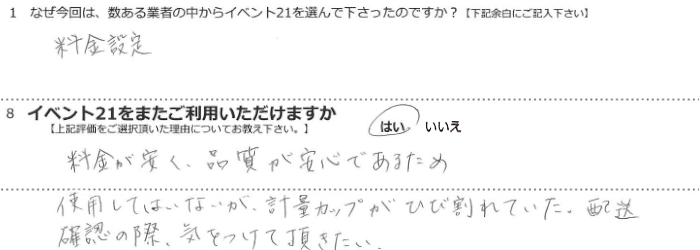 1 なぜ今回は、数ある業者の中からイベント21を選んで下さったのですか？【下記余白にご記入下さい】
料金設定
8 イベント21をまたご利用いただけますか
【上記評価をご選択頂いた理由についてお教え下さい。】
はい いいえ
料金が安く、品質が安心であるため
使用してはいないが、計量カップがひび割れていた。配送
確認の際、気をつけて頂きたい。